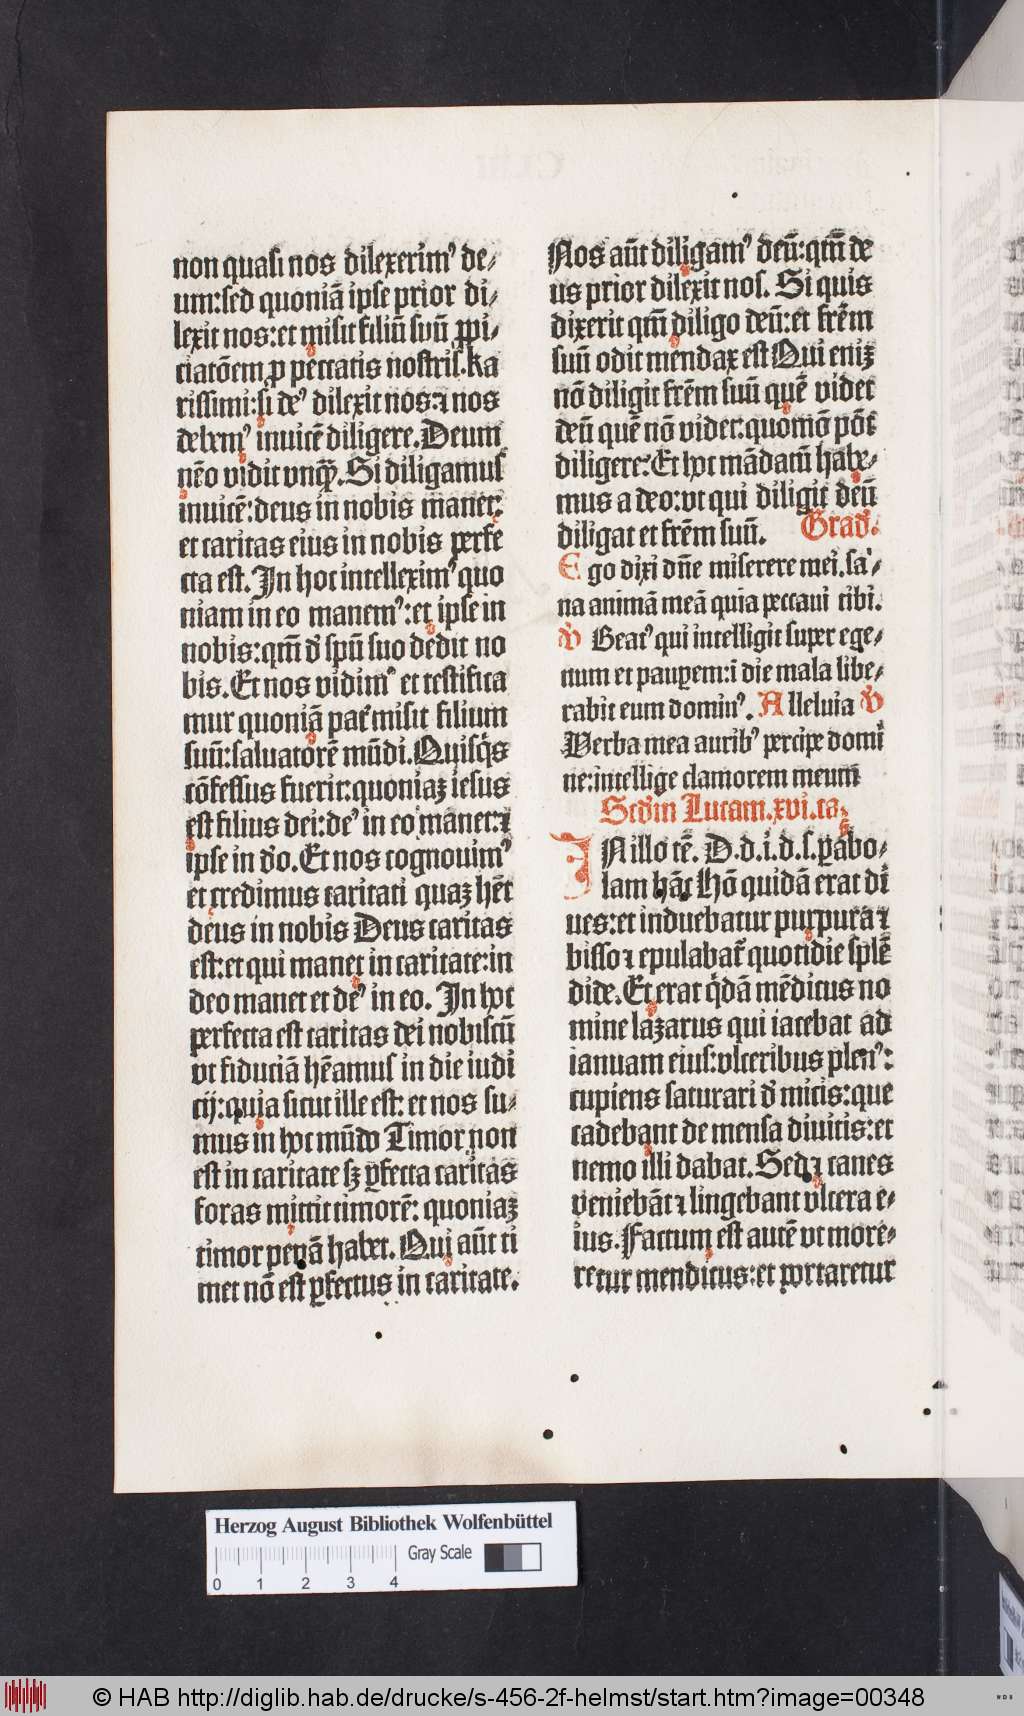 non quasi nos dilexerimꝰ de⸗
um:sed quoniā ipse prior di⸗
lexit nos:et misit filiū suū ꝓpi⸗
ciatōem ꝓ peccatis nostris.ka
rissimi:si deꝰ dilexit nos ⁊ nos
debemꝰ inuicē diligere.Deum
nēo vidit vnꝙ̄.Si diligamus
inuicē:deus in nobis manet:
et caritas eius in nobis perfe
cta est.In hoc intelleximꝰ quo
niam in eo manemꝰ:et ipse in
nobis:qm̄ d̓ spū suo dedit no
bis.Et nos vidimꝰ et testifica
mur quoniā pat̄ misit filium
suū:saluatorē mūdi.Quisq̇s
cōfessus fuerit:quoniaꝫ iesus
est filius dei:deꝰ in eo manet:⁊
ipse in d̓o.Et nos cognouimꝰ
et credimus caritati quaꝫ hēt
deus in nobis Deus caritas
est:et qui manet in caritate:in
deo manet et deꝰ in eo. In hoc
perfecta est caritas dei nobiscū
vt fiduciā hēamus in die iudi
cij:quia sicut ille est: et nos su⸗
mus in hoc mūdo Timor non
est in caritate sꝫ ꝑfecta caritas
foras mittit timorē: quoniaꝫ
timor penā habet. Qui aūt ti
met nō est ꝑfectus in caritate.
Nos aūt diligamꝰ deū:qm̄ de
us prior dilexit nos. Si quis
dixerit qm̄ diligo deū:et frēm
suū odit mendax est Qui eniꝫ
nō diligit frēm suū quē videt
deū quē nō videt:quomō pōt̄
diligere?Et hoc mādatū habe⸗
mus a deo:vt qui diligit deū
diligat et frēm suū. Grad̓.
Ego dixi dn̄e miserere mei.sa⸗
na animā meā quia peccaui tibi.
V̓ Beatꝰ qui intelligit super ege⸗
num et pauꝑem:ī die mala libe⸗
rabit eum dominꝰ. Alleluia V̓
Verba mea auribꝰ percipe domi
ne:intellige clamorem meum
Scd̓m Lucam.xvi.ca.
IN illo tē. D.d.i.d.s.ꝑabo⸗
lam hāc Hō quidā erat di
ues:et induebatur purpura ⁊
bisso ⁊ epulabat̄ quotidie splē
dide. Et erat q̇dā mēdicus no
mine lazarus qui iacebat ad
ianuam eius:vlceribus plenꝰ:
cupiens saturari d̓ micis:que
cadebant de mensa diuitis:et
nemo illi dabat. Sed ⁊ canes
veniebāt ⁊ lingebant vlcera e⸗
ius. Factum est autē vt more⸗
retur mendicus:et portaretur
Herzog August Bibliothek Wolfenbüttel
Gray Scale
0 1 2 3 4
© HAB http://diglib.hab.de/drucke/s-456-2f-helmst/start.htm?image=00348